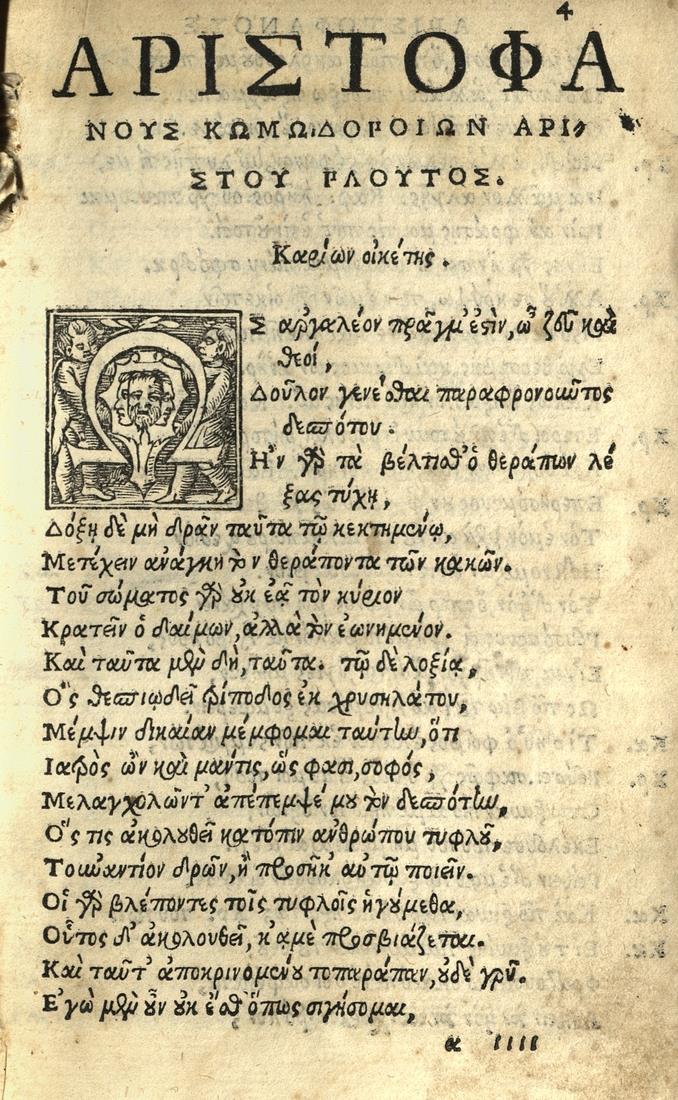 4
ΑΡΙΣΤΟΦΑ
ΝΟΥΣ ΚΩΜΩΔΟΠΟΙΩΝ ΑΡΙ-
ΣΤΟΥ ΠΛΟΥΤΟΣ.
Καρίων οἰκέτης.
ΩΣ ἀργαλέον πρᾶγμ' ἐστὶν, ὦ ζεῦ καὶ
θεοί,
Δοῦλον γενέσθαι παραφρονοῦντος
δεσπότου.
Ἢν γὰρ τὰ βέλτισθ' ὁ θεράπων λέ
ξας τύχῃ,
Δόξῃ δὲ μὴ δρᾶν ταῦτα τῷ κεκτημένῳ,
Μετέχειν ἀνάγκη τὸν θεράποντα τῶν κακῶν.
Τοῦ σώματος γὰρ οὐκ ἐᾷ τὸν κύριον
Κρατεῖν ὁ δαίμων, ἀλλὰ τὸν ἐωνημένον.
Καὶ ταῦτα μὲν δὴ, ταῦτα. τῷ δὲ λοξίᾳ,
Ὃς θεσπιῳδεῖ τρίποδος ἐκ χρυσηλάτου,
Μέμψιν δικαίαν μέμφομαι ταύτην, ὅτι
Ἰατρὸς ὢν καὶ μαντις, ὥς φασι, σοφός,
Μελαγχολῶντ' ἀπέπεμψέ μου τὸν δεσπότην,
Ὅς τις ἀκολουθεῖ κατόπιν ἀνθρώπου τυφλοῦ,
Τοὐναντίον δρῶν, ἢ προσῆκ' αὐτῷ ποιεῖν.
Οἱ γὰρ βλέποντες τοῖς τυφλοῖς ἡγούμεθα,
Οὗτος δ' ἀκολουθεῖ, κ'ἀμὲ προσβιάζεται.
Καὶ ταῦτ' ἀποκρινομένου τοπαράπαν, οὐδὲ γρῦ.
Ἐγὼ μὲν οὖν οὐκ ἔσθ' ὅπως σιγήσομαι,
α ιιιι